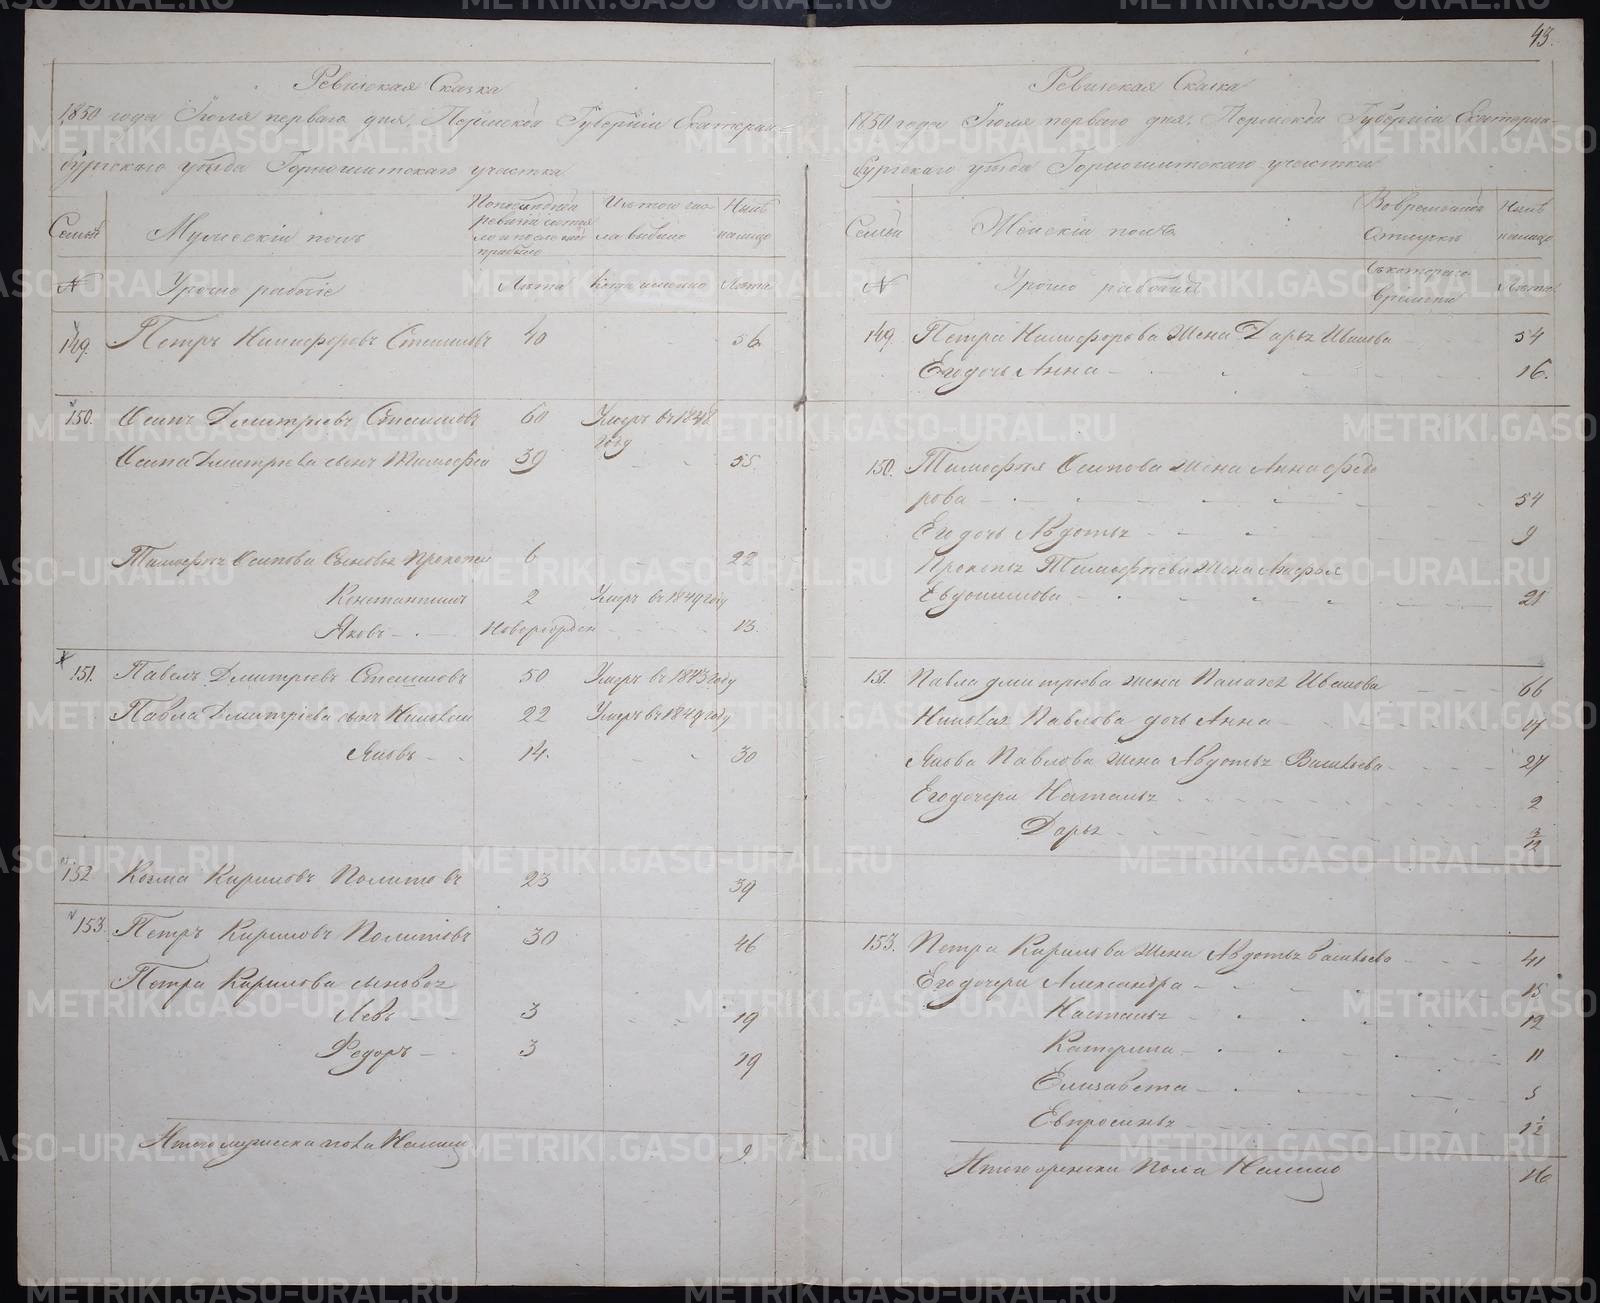 43.
Ревизская Сказка
1850 года Іюля перваго дня, Пермской Губерніи Екатерин-
бургскаго уѣзда Горнощитскаго участка
Семьи
Мужескій полъ
По последней ревизіи состояло и после оной прибыло
Изъ того числа выбыло
Нынѣ налицо
№
Урочно рабочіе
Лѣта
Когда именно
Лѣта
149. Петръ Никифоровъ Стешиловъ 40 56
150. Осипъ Дмитріевъ Стешиловъ 60 Умеръ въ 1848
году
Осипа Дмитріева сынъ Тимофей 39 55
Тимофѣя Осипова Сыновья Прокопей 6 22
Константинъ 2 Умеръ въ 1849 году
Яковъ Новорожден 13.
151. Павелъ Дмитріевъ Стешиловъ 50 Умеръ въ 1843 году
Павла Дмитріева сынъ Николай 22 Умеръ въ 1849 году
Яковъ 14. 30
152 Козма Кириловъ Политовъ 23 39
153. Петръ Кириловъ Политовъ 30 46
Петра Кирилова сыновья
Левъ 3 19
Федоръ 3 19
Итого мужеска пола Налицо 9.
Ревизская Сказка
1850 года Іюля перваго дня, Пермской Губерніи Екатерин-
бургскаго уѣзда Горнощитскаго участка
Семьи
Женскій полъ
Во временной Отлучкѣ
Нынѣ налицо
№
Урочно рабочіе
Съ котораго времени
Лѣта
149. Петра Никифорова Жена Дарья Иванова 54
Его дочь Анна 16.
150. Тимофея Осипова Жена Анна Федо
рова 54
Его дочь Авдотья 9
Прокопья Тимофеева Жена
Евдокимова 21
151. Павла Дмитріева жена Палагея Иванова 66
Николая Павлова дочь Анна 17
Якова Павлова жена Авдотья Васильева 27
Его дочери Наталья 2
Дарья 3/12
153. Петра Кирилова жена Авдотья Васильева 41
Его дочери Александра 15
Наталья 12
Катерина 11
Елизавета 5
Евпросинья 1/2
Итого женска Пола Налицо 16
METRIKI.GASO-URAL.RU